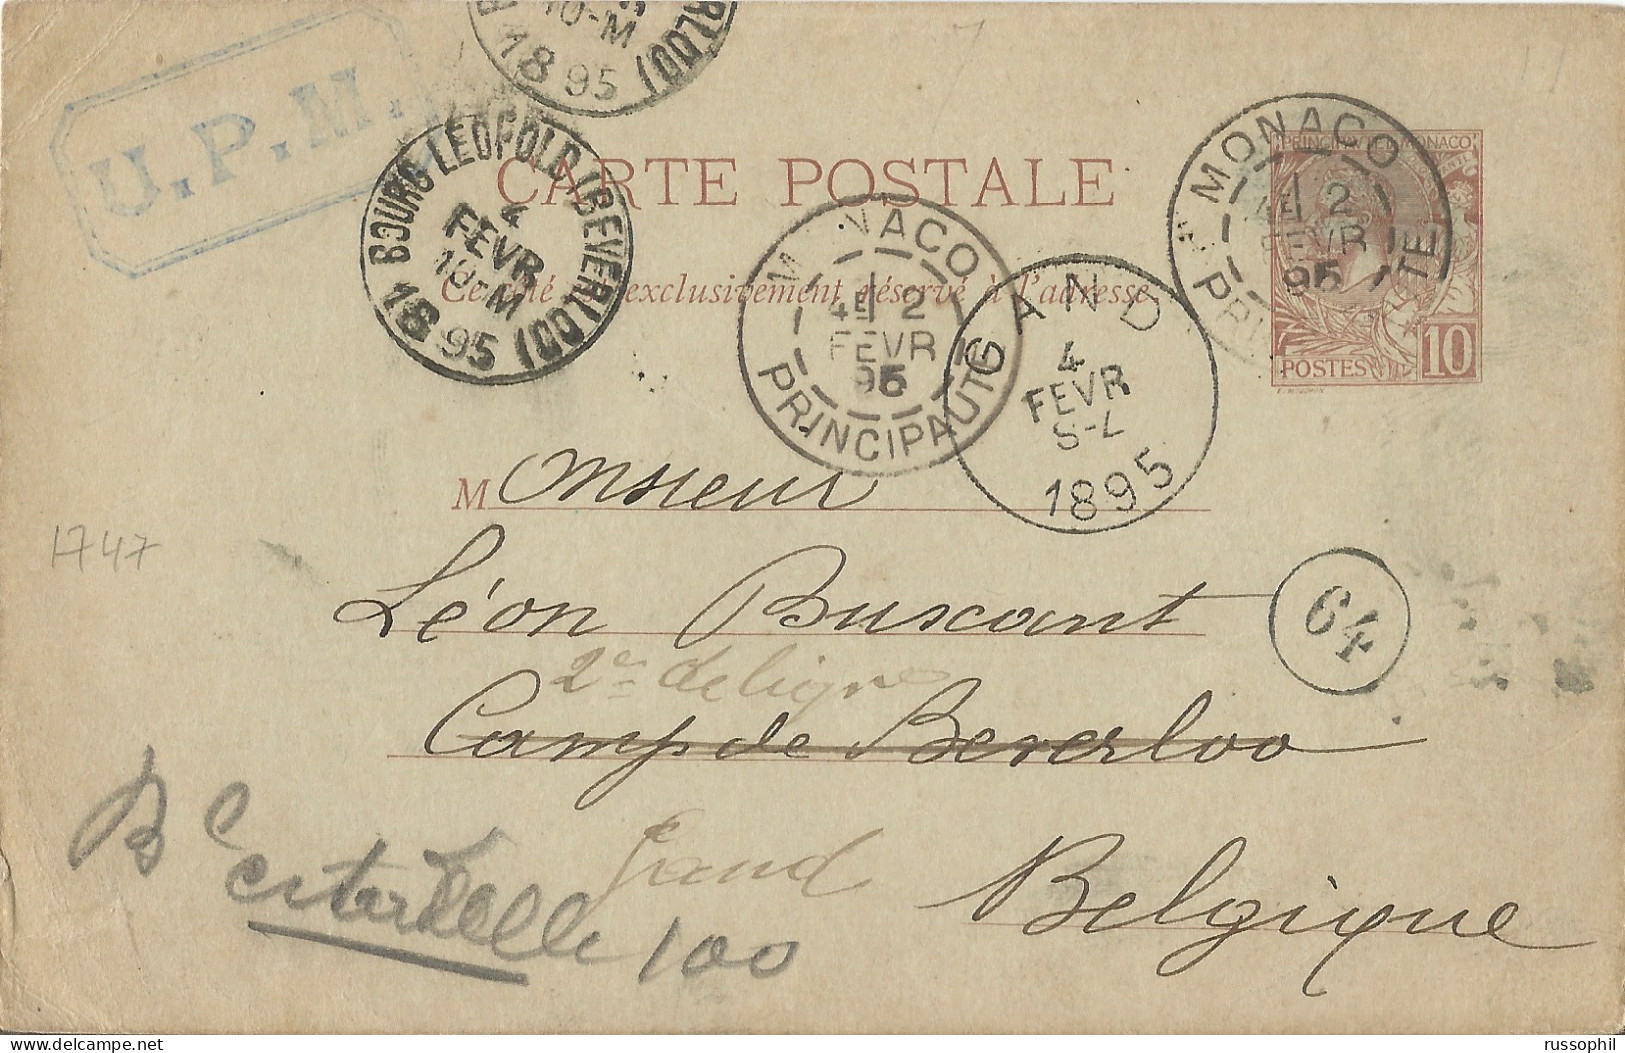 1895
10-M
U.P.M.
BOURG-LEOPOLD (BEVERLOO)
4
FEVR
10-M
1895
CARTE POSTALE
Ce côté est exclusivement réservé à l'adresse
MONACO
4E 2
FEVR
95
PRINCIPAUTÉ
MONACO
2
FEVR
95
PRINCIPAUTÉ
PRINCIPAUTÉ DE MONACO
POSTES
10
GAND
4
FEVR
8-
1895
Monsieur
Léon Buscant
2e de ligne
Camp de Beverloo
Gand
Belgique
64
1747
100
russophil
www.delcampe.net